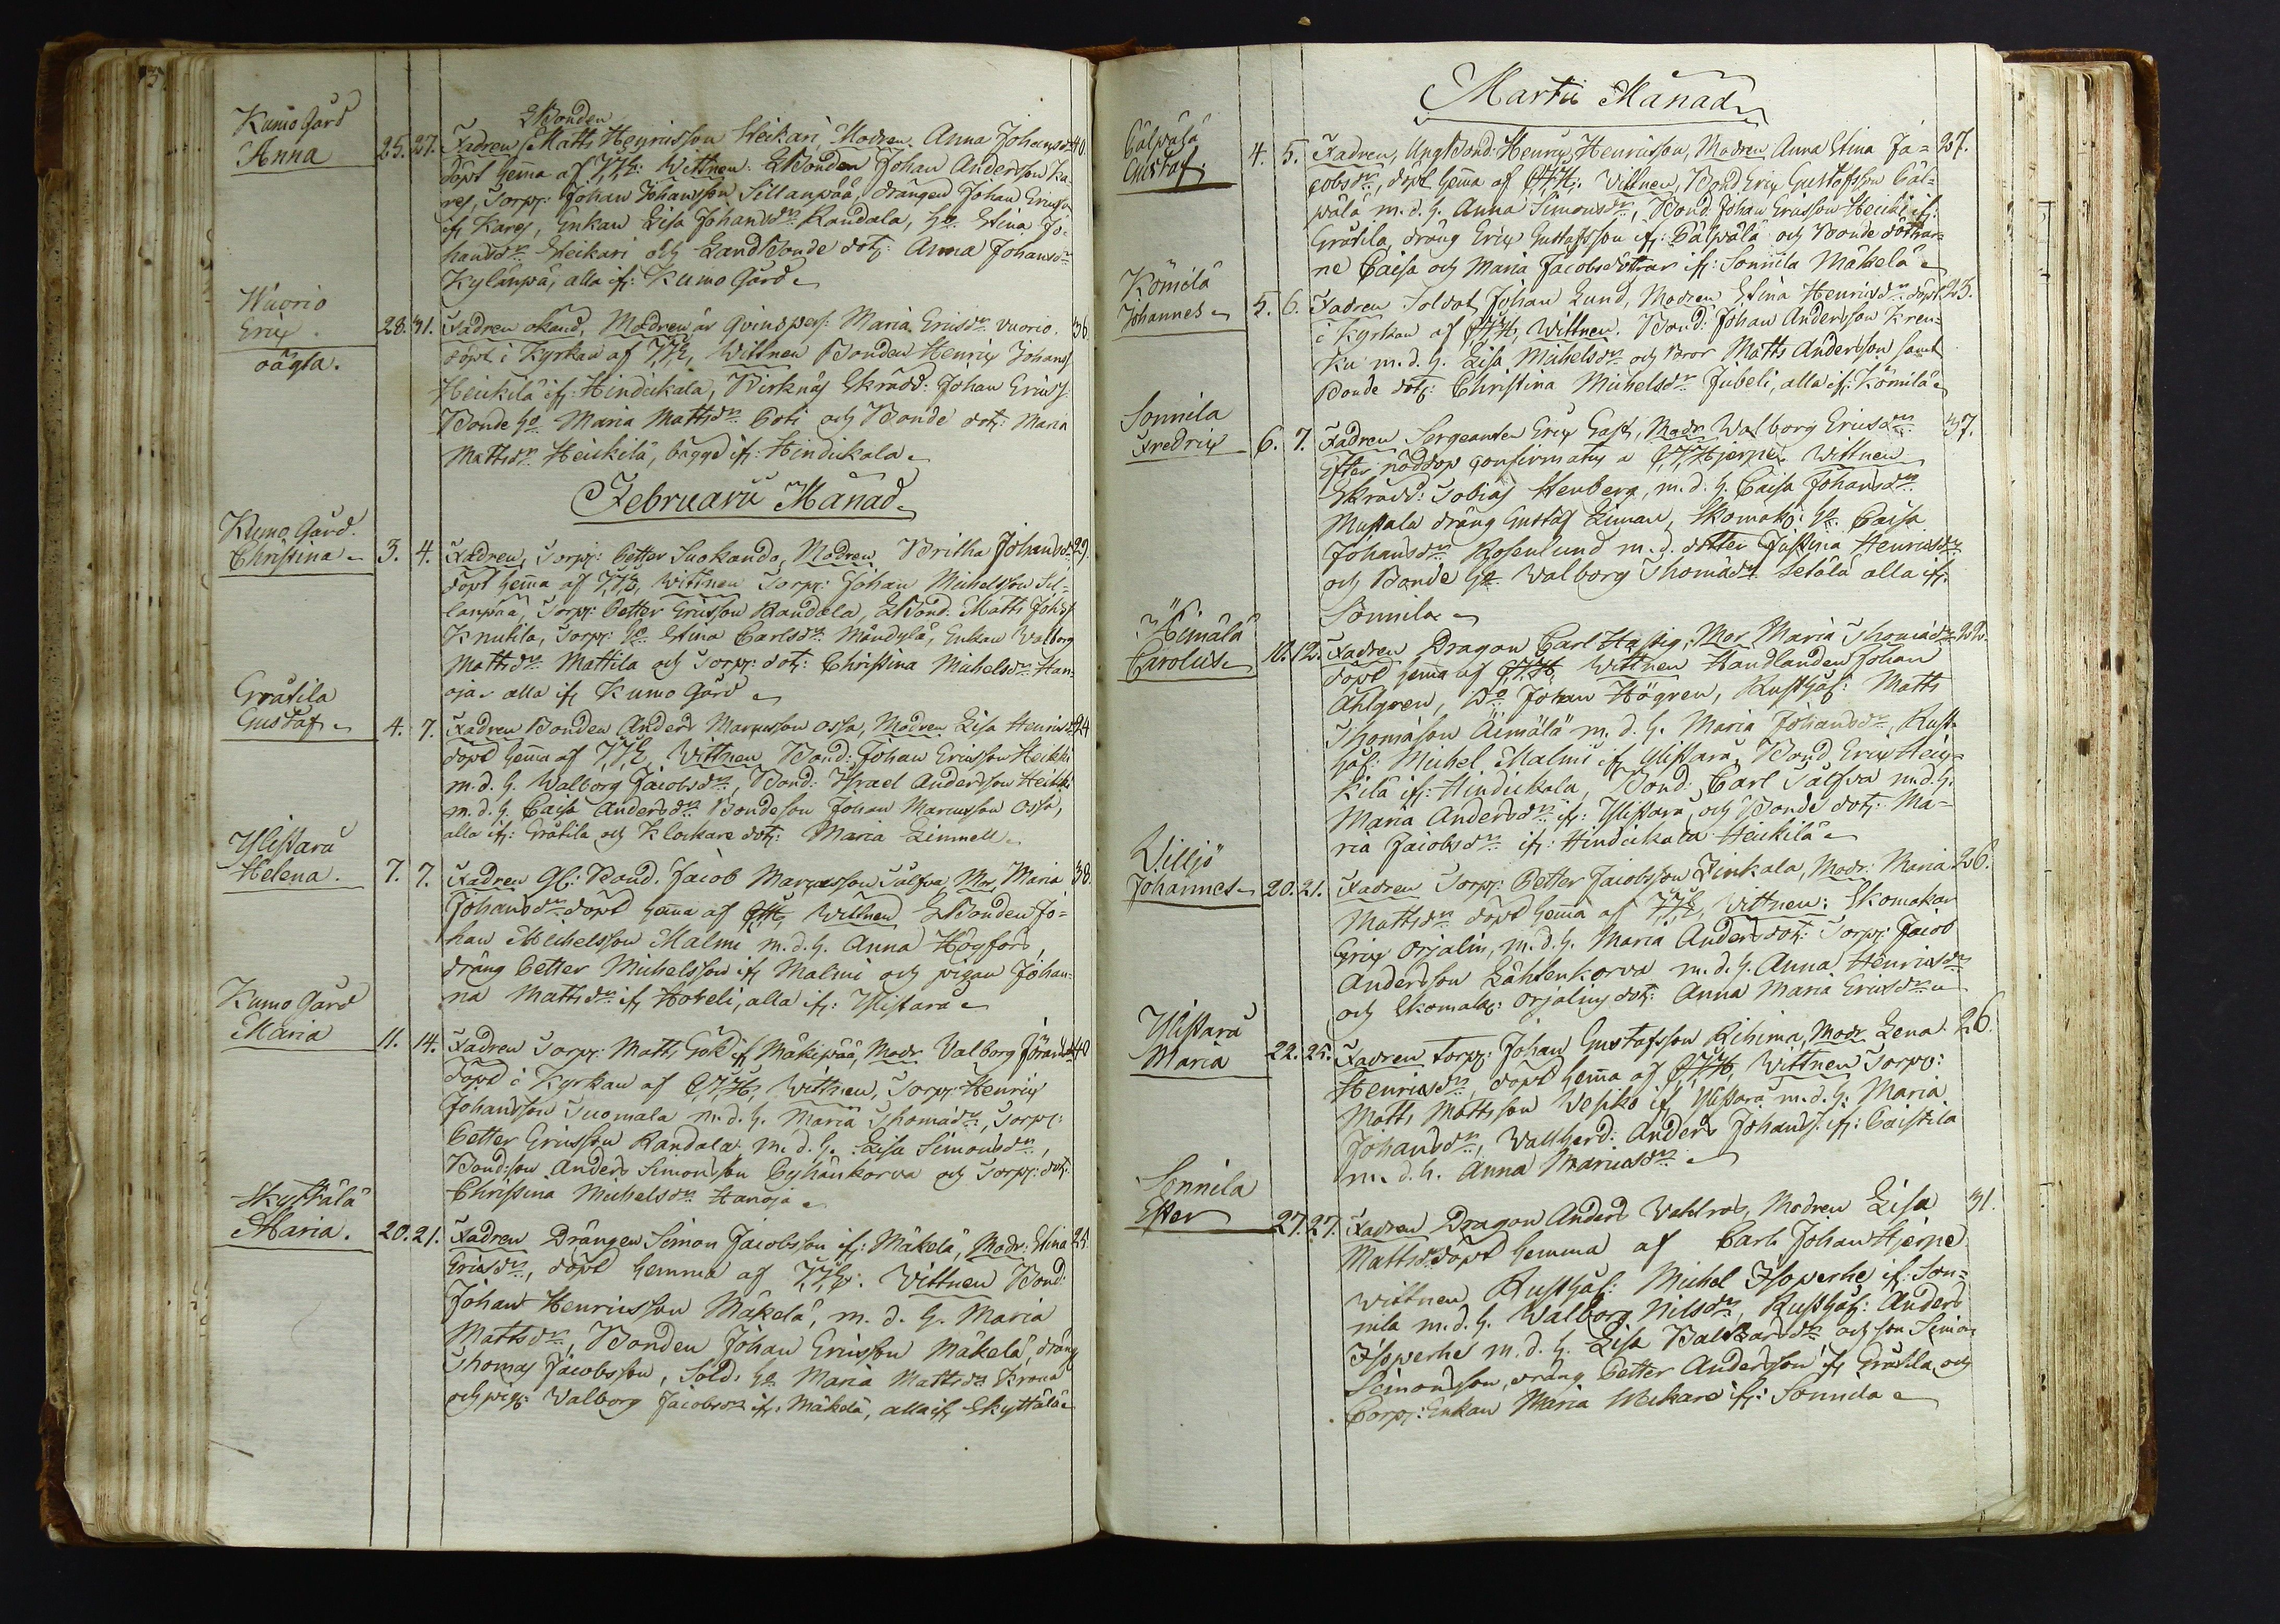 Kumo Gård
Anna
25. 27. LBonden
Fadren Matts Henricsson Heikari, Modren Anna Johansdr 40
döpt hema af Wittnen: LBonden Johan Andersson Ka-
rej, Torpr: Johan Johansson Sillanpää, drängen Johan Ericss.
ifr Karej, Enkan Lisa Johansdr Randala, ho Stina Jo-
hansdr Heikari och LandBonde dotr: Anna Johansdr
Kylänpä, alla ifr: Kumo Gård
Wuorio
Eric
oägta.
28. 31. Fadren okänd, Modren är qvinspers: Maria Ericsdr Vuorio. 36
döpt i Kyrkan af Wittnen Bonden Henric Johans
Heickilä ifr: Hindickala, Birknäs Skrädd: Johan Ericss
Bonde ho Maria Mattsdr Poti och Bonde dotr: Maria
Mattsdr Heickilä, bägge ifr: Hindickala
Februarii Månad
Kumo Gård.
Christina
3. 4. Fadren, Torpr: Petter Suokando, Modren Britha Johansdr 29
döpt hema af Wittnen Torpr: Johan Michelsson Sil-
lanpää, Torpr: Petter Ericsson Randala, LBond: Matts Johss
Knutila, Torpr: ho Stina Carlsdr Mändylä, Enkan Walborg
Mattsdr Mattila och Torpr: dotr: Christina Michelsdr Han-
oja alla ifr Kumo Gård
Gråtila
Gustaf
4. 7. Fadren Bonden Anders Marcusson Ossa, Modren Lisa Henricsdr 24
döpt hema af Wittnen Bond: Johan Ericsson Heickki
m. d. h. Walborg Jacobsdr, Bond: Israel Andersson Heickki
m. d. h. Caisa Andersdr Bondeson Johan Marcusson Ossa,
alla ifr: Gråtila och Klockare dotr: Maria Limnell
Ylistaru
Helena.
7. 7. Fadren Gl: Bond. Jacob Marcusson Sälfva, Mor Maria 38
Johansdr döpt hema af Wittnen LBonden Jo-
han Michelsson Malmi m. d. h. Anna Högfors,
dräng Petter Michelsson ifr Malmi och pigan Johan-
na Mattsdr ifr Hoveli, alla ifr: Ylistaru
Kumo Gård
Maria
11. 14. Fadren Torpr: Matts Gök ifr Mäkipää, Modr. Valborg Jöransdr 40
döpt i Kyrkan af Wittnen, Torpr: Henric
Johansson Tuomala m. d. h. Maria Thomasdr, Torpr:
Petter Ericsson Randala m. d. h. Lisa Simonsdr,
Bondson Anders Simonsson Pyhänkorva och Torpr: dotr:
Christina Michelsdr Hanoja
Skyttälä
Maria.
20. 21. Fadren Drängen Simon Jacobsson ifr: Mäkelä, Modr: Stina 24
Ericsdr, döpt hemma af Wittnen Bond:
Johan Henricsson Mäkelä, m. d. h. Maria
Mattsdr, Bonden Johan Ericsson Mäkelä, dräng
Thomas Jacobsson, Sold: ho Maria Mattsdr Krona
och pig: Valborg Jacobsdr ifr: Mäkelä, alla ifr Skyttälä
Martii Månad
Pälpälä
Gustaf.
4. 5. Fadren, UngBond: Henric Henricsson, Modren Anna Stina Ja- 27.
cobsdr, döpt hema af Wittnen, Bond Eric Gustafsson Päl-
pälä m. d. h. Anna Simonsdr, Bond. Johan Ericsson Heicki ifr:
Gråtila, dräng Eric Gustafsson ifr: Pälpälä och Bonde döttrar-
ne Caisa och Maria Jacobsdöttrar ifr: Sonnila Mäkelä
Kömilä
Johannes
5. 6. Fadren Soldat Johan Lund, Modren Stina Henricsdr döpt 25.
i Kyrkan af Wittnen. Bond: Johan Andersson Kren-
ku m. d. h. Lisa Michelsdr och Bror Matts Andersson samt
Bonde dotr: Christina Michelsdr Jubeli, alla ifr: Kömilä
Sonnila
Fredric
6. 7. Fadren Sergeanten Eric Gast, Modr Walborg Ericsdr 37.
efter nöddop confirmatus a Hjerpe Wittnen
Skrädd: Tobias Stenberg, m. d. h. Caisa Johansdr
Mustala dräng Gustaf Liman, Skomakr: ho Caisa
Johansdr Rosenlund m. d. dotter Justina Henricsdr
och Bonde ho Walborg Thomasdr Setälä alla ifr:
Sonnila
Äimälä
Carolus
10. 12. Fadren Dragon Carl Hastig, Mor Maria Thomasdr 22.
döpt hema af Wittnen Handlanden Johan
Ahlgren, Do Johan Högren, Rusthåf: Matts
Thomasson Äimälä m. d. h. Maria Johansdr, Rust-
håf: Michel Malmi ifr Ylistaru, Bond Eric Heic-
kilä ifr: Hindickala, Bond: Carl Sälfva m. d. h.
Maria Andersdr ifr: Ylistaru, och Bonde dotr: Ma-
ria Jacobsdr ifr: Hindickala Heickilä
Villjö
Johannes
20. 21. Fadren Torpr: Petter Jacobsson Finkala, Modr: Maria 26.
Mattsdr döpt hema af Wittnen: Skomakar
Eric Orjalin, m. d. h. Maria Andersdotr: Torpr: Jacob
Andersson Lähtenkorva m. d. h. Anna Henricsdr
och Skomakr: Orjalins dotr: Anna Maria Ericsdr
Ylistaru
Maria
22. 25. Fadren Torpr: Johan Gustafsson Rihima, Modr Lena 26.
Henricsdr, döpt hema af Wittnen Torpr:
Matts Mattsson Wesiko ifr Ylistaru m. d. h. Maria
Johansdr, Vallherd: Anders Johanss ifr: Paistila
m. d. h. Anna Maricsdr
Sonnila
Ester
27. 27. Fadren Dragon Anders Vahlros, Modren Lisa 31.
Mattsdr döpt hemma af Carl Johan Hjerpe
Wittnen Rusthåf: Michel Isoperhe ifr: Son-
nila m. d. h. Walborg Nilsdr, Rusthåf: Anders
Isoperhe m. d. h. Lisa Baltzarsdr och son Simon
Simonsson, dräng Petter Andersson ifr Gråtila och
Corpr: Enkan Maria Weckare ifr: Sonnila